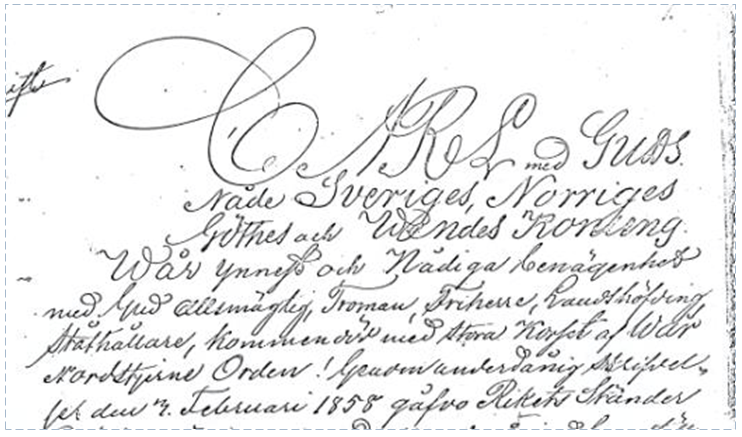 CARL med GUDS
Nåde Sveriges, Norriges
Göthes och Wendes Konung.
Wår ynnest och Nådiga benägenhet
med Gud allsmägtig, Troman, Friherre, Landshöfding,
Ståthållare, kommendör med stora Korset af Wår
Nordstjerne Orden! Genom underdånig skrifvel-
ser den 3. Februari 1858 gåfvo Rikets Ständer